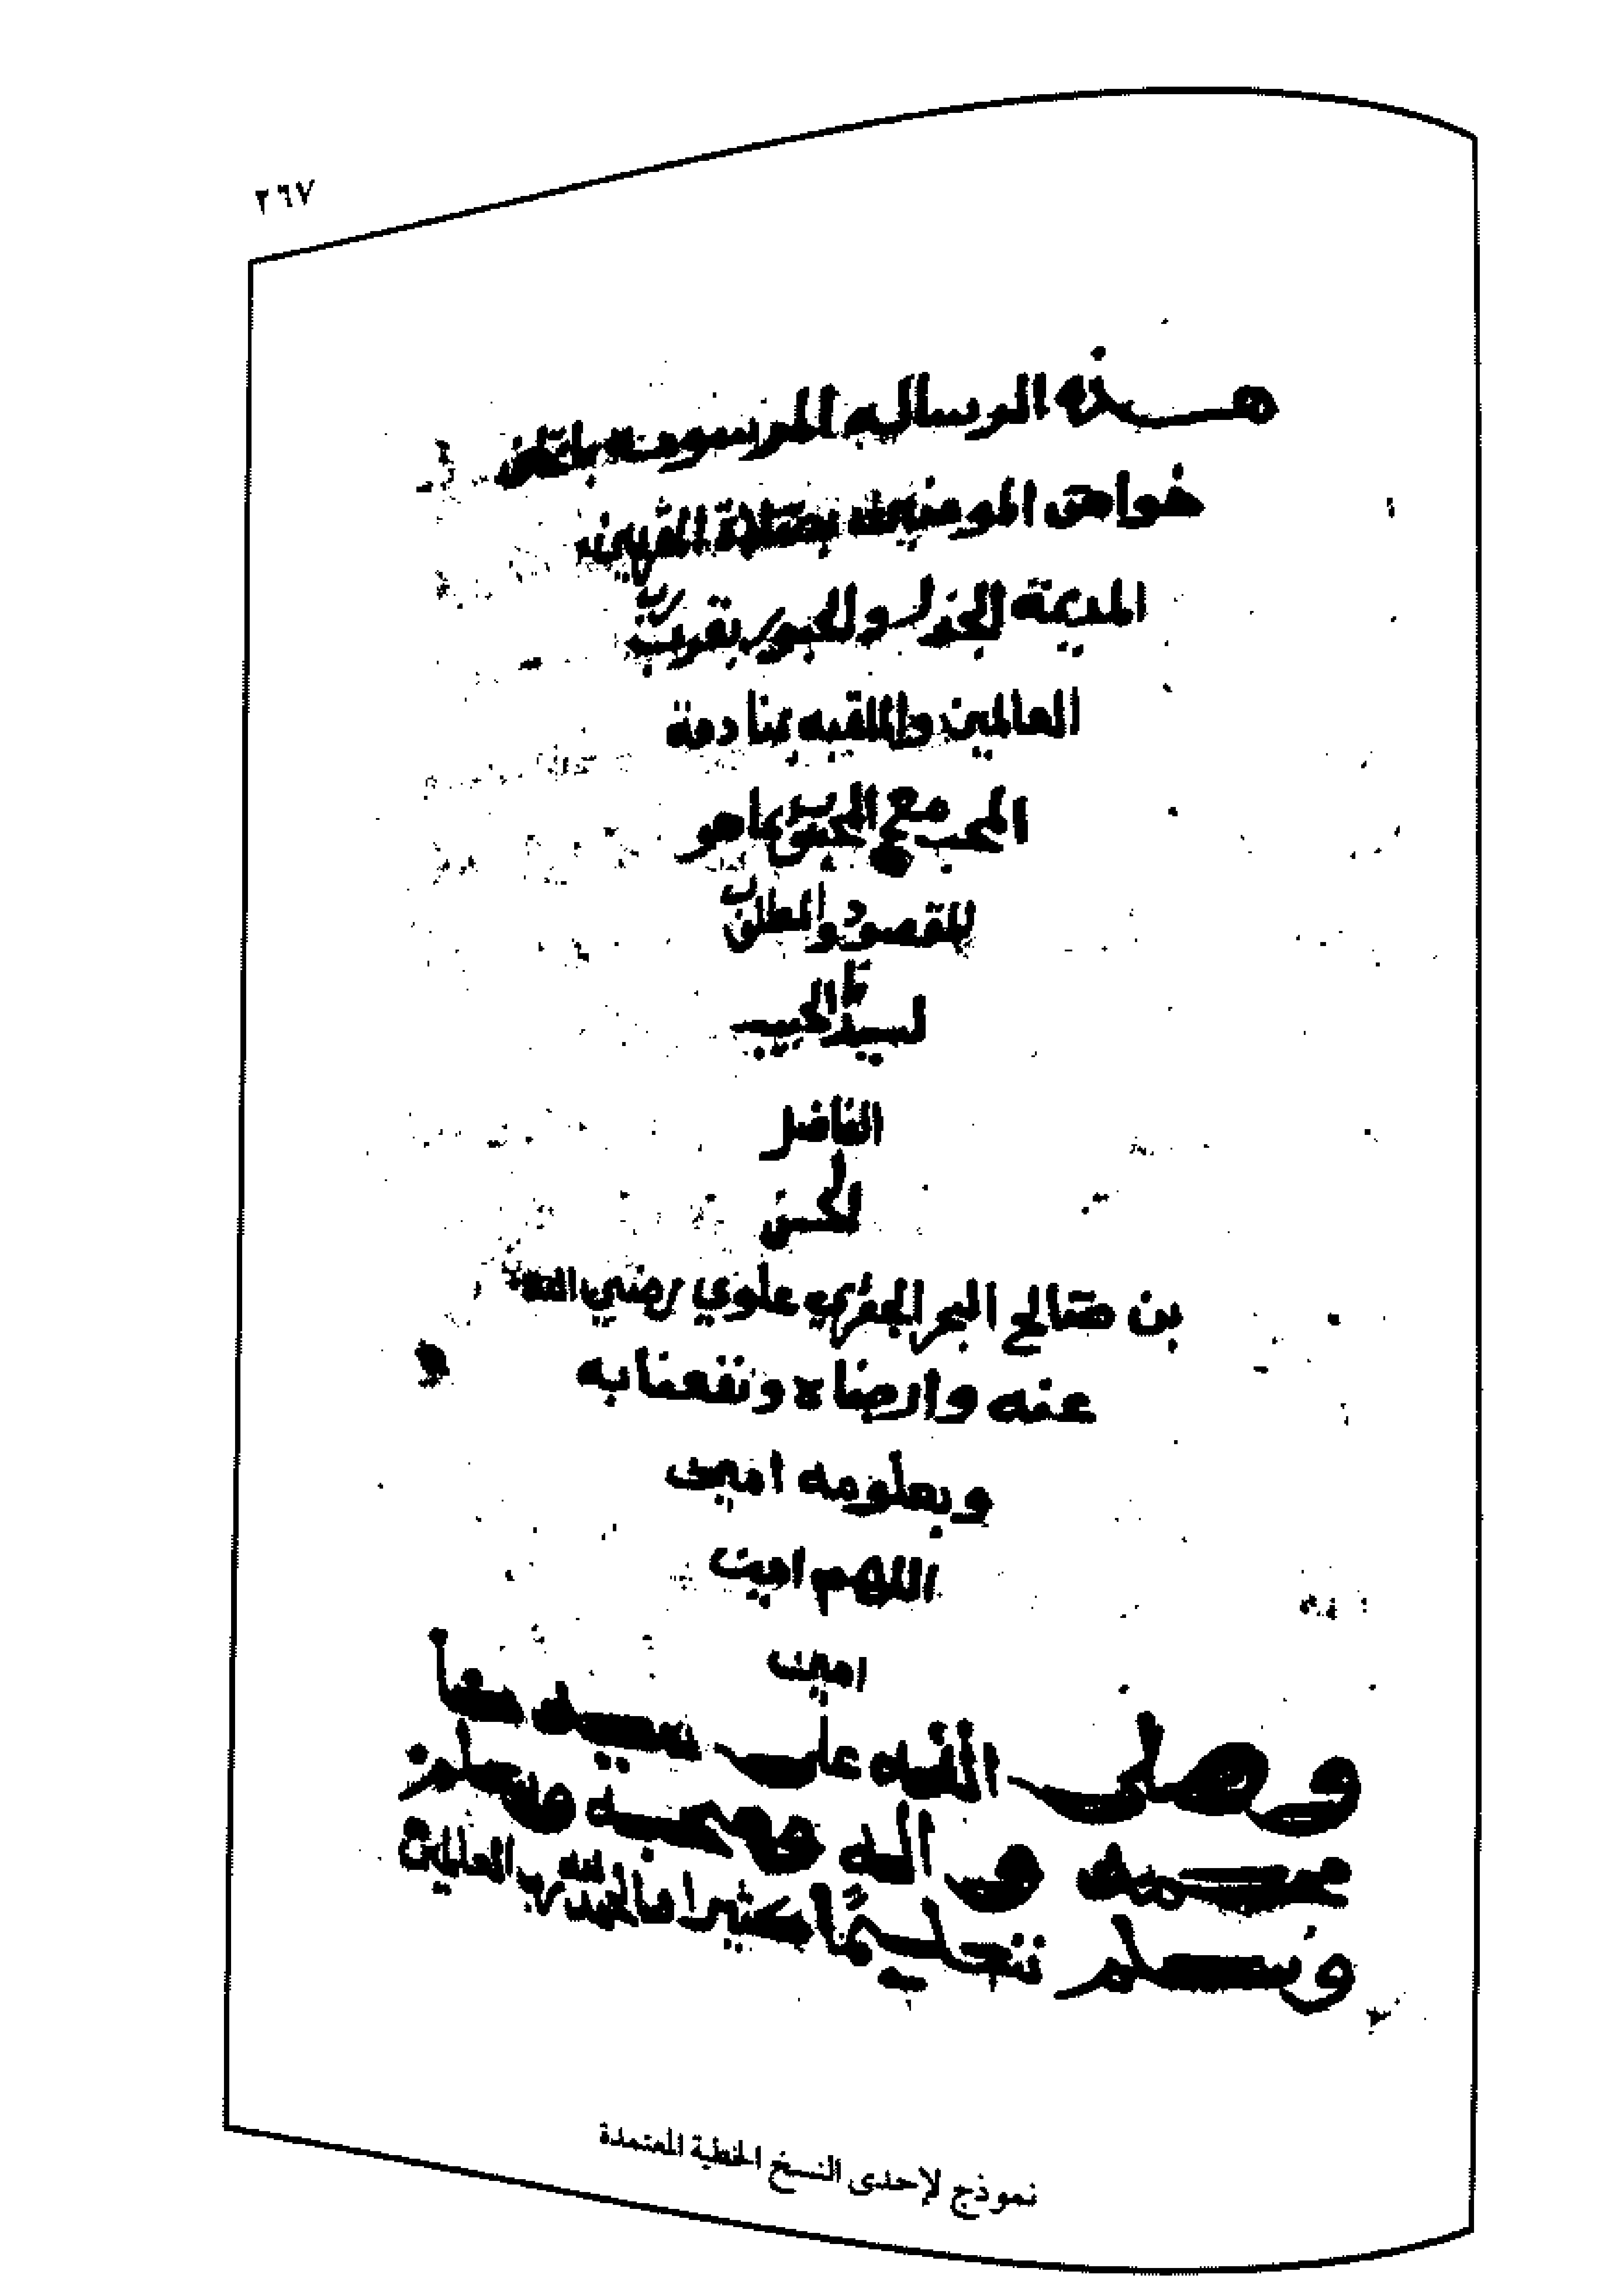 ٢٦٧
هذه الرساله المرسومه باتحاف
خواص المومنين بصلاة المقربين
المديمة للجذل والحبور بقرب رب
العالمين والملقبه بمنادمة
المحب مع المحبوب بما هو
للمقصود والمطلوب
لسيدنا الحبيب
الفاضل
الحسن
بن صالح البحر الجفري علوي رضي الله
عنه وارضاه ونفعنا به
وبعلومه امين
اللهم امين
امين
وصلى الله على سيدنا
محمد واله وصحبه وسلم
وسلم تسليمًا كثيرا والحمد لله رب العالمين
نموذج لإحدى النسخ الخطية المعتمدة